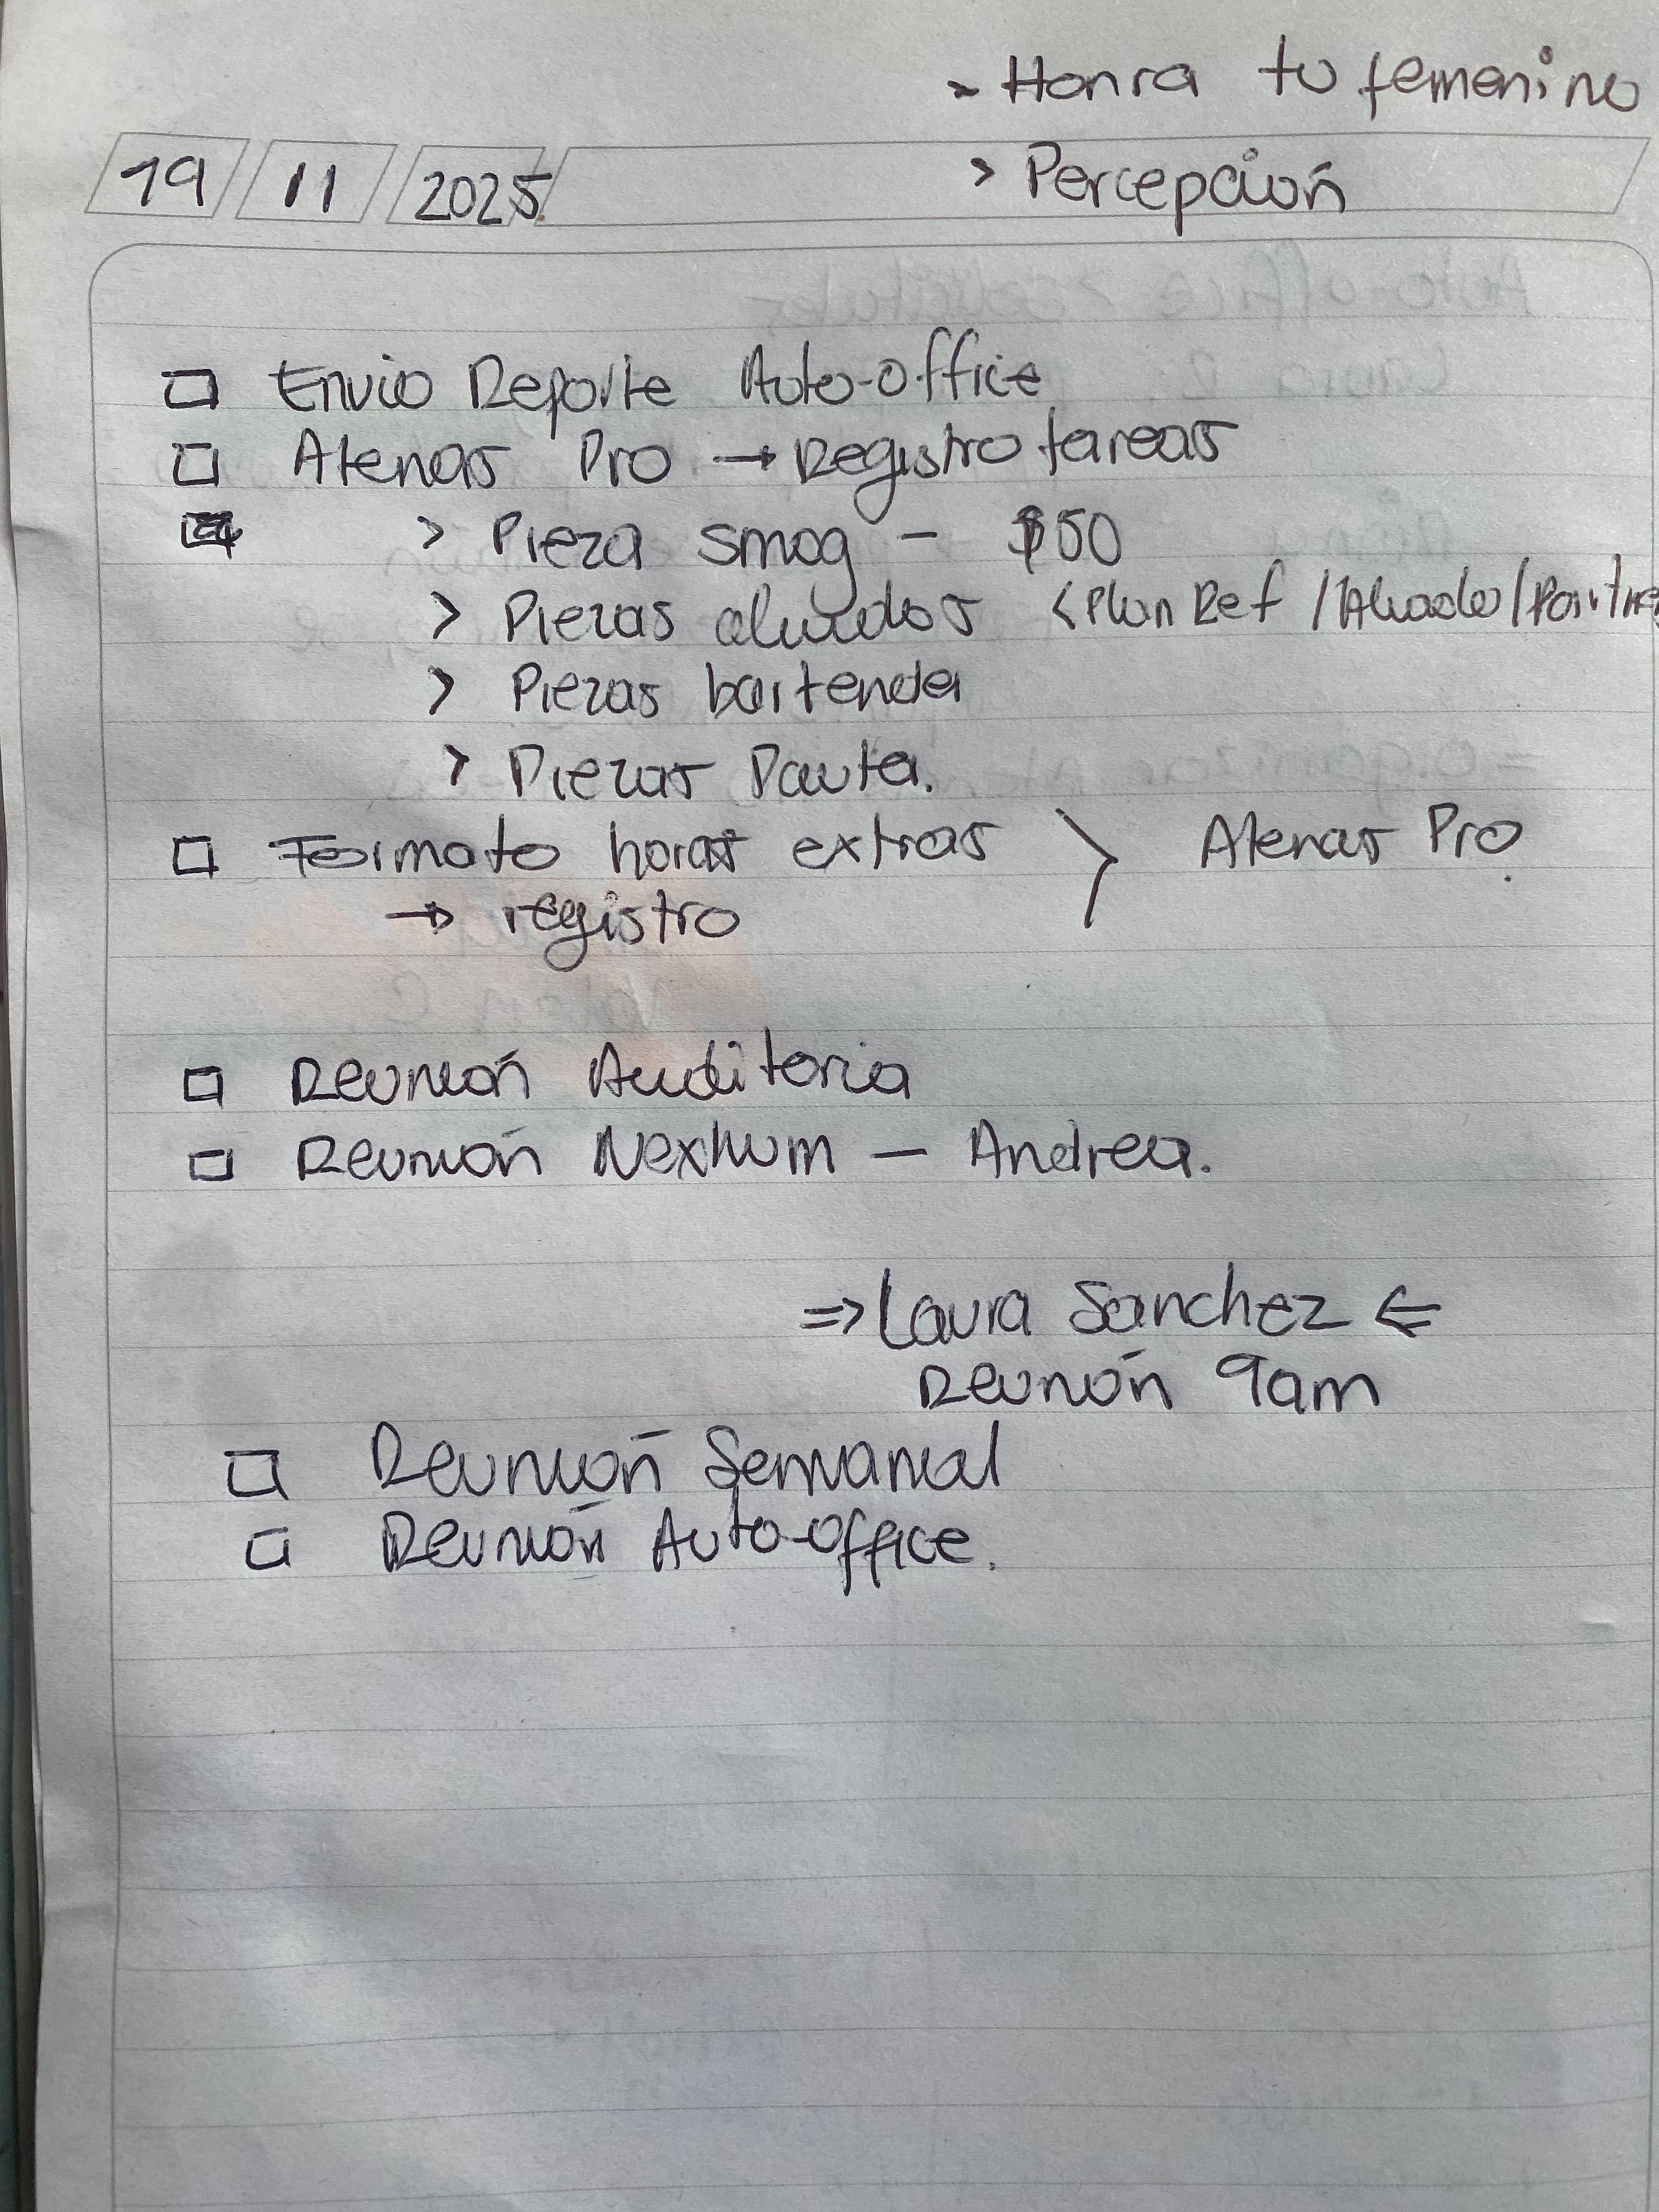 - Honra tu femenino
19 11 2025
> Percepción
□ Envio Reporte Auto-office
□ Atenas Pro → Registro tareas
> Pieza smog - $50
> Piezas aliados <Plan Ref / Aliado / Partne
> Piezas bartender
> Piezas Pauta.
□ Formato horas extras > Atenas Pro.
→ registro
□ Reunión Auditoria
□ Reunión Nexhum - Andrea.
⇒ Laura Sanchez ⇐
Reunón 9am
□ Reunión Semanal
□ Reunión Auto-office.